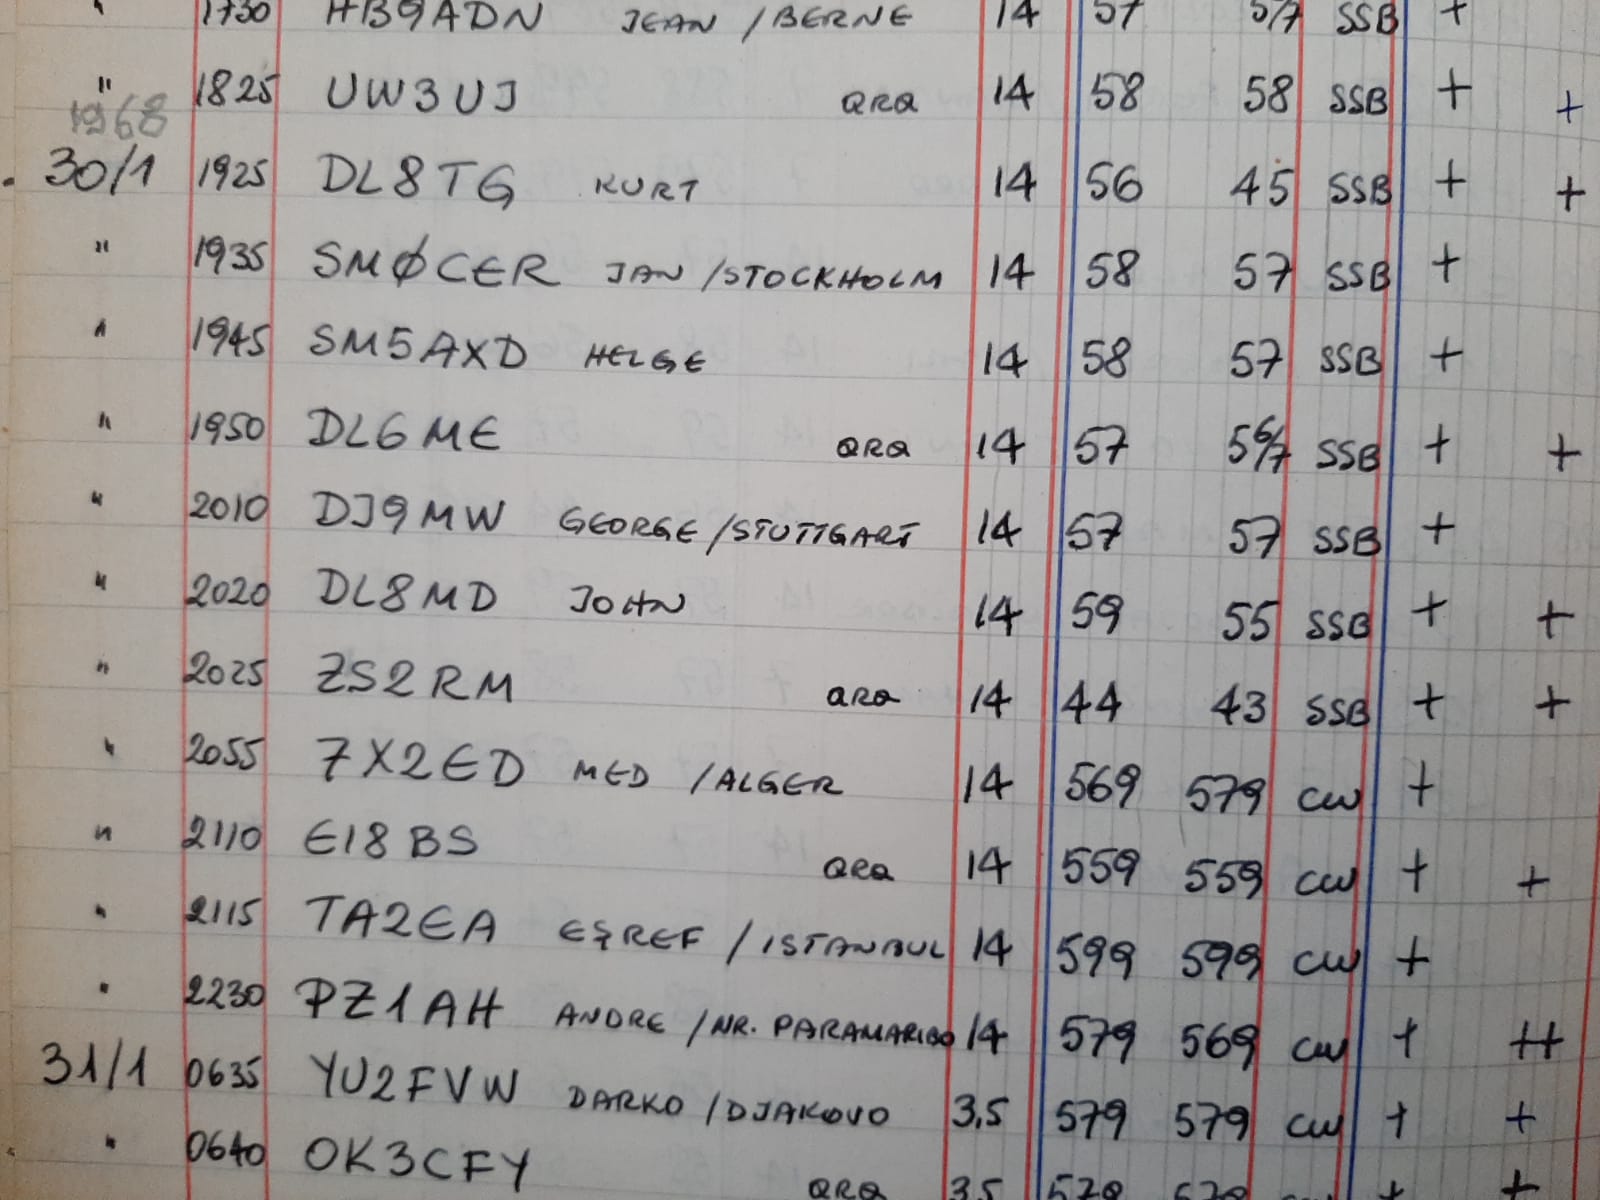 " 1730 HB9ADN JEAN /BERNE 14 57 5/7 SSB +
" 1825 UW3UJ QRQ 14 58 58 SSB + +
1968
30/1 1925 DL8TG KURT 14 56 45 SSB + +
" 1935 SMØCER JAN /STOCKHOLM 14 58 57 SSB +
" 1945 SM5AXD HELGE 14 58 57 SSB +
" 1950 DL6ME QRQ 14 57 56/7 SSB + +
" 2010 DJ9MW GEORGE /STUTTGART 14 57 57 SSB +
" 2020 DL8MD JOHN 14 59 55 SSB + +
" 2025 ZS2RM QRQ 14 44 43 SSB + +
" 2055 7X2ED MED /ALGER 14 569 579 CW +
" 2110 EI8BS QRQ 14 559 559 CW + +
" 2115 TA2EA EŞREF / ISTANBUL 14 599 599 CW +
" 2230 PZ1AH ANDRE /NR. PARAMARIBO 14 579 569 CW + ++
31/1 0635 YU2FVW DARKO /DJAKOVO 3,5 579 579 CW + +
" 0640 OK3CFY QRQ 3,5 579 579 CW + +